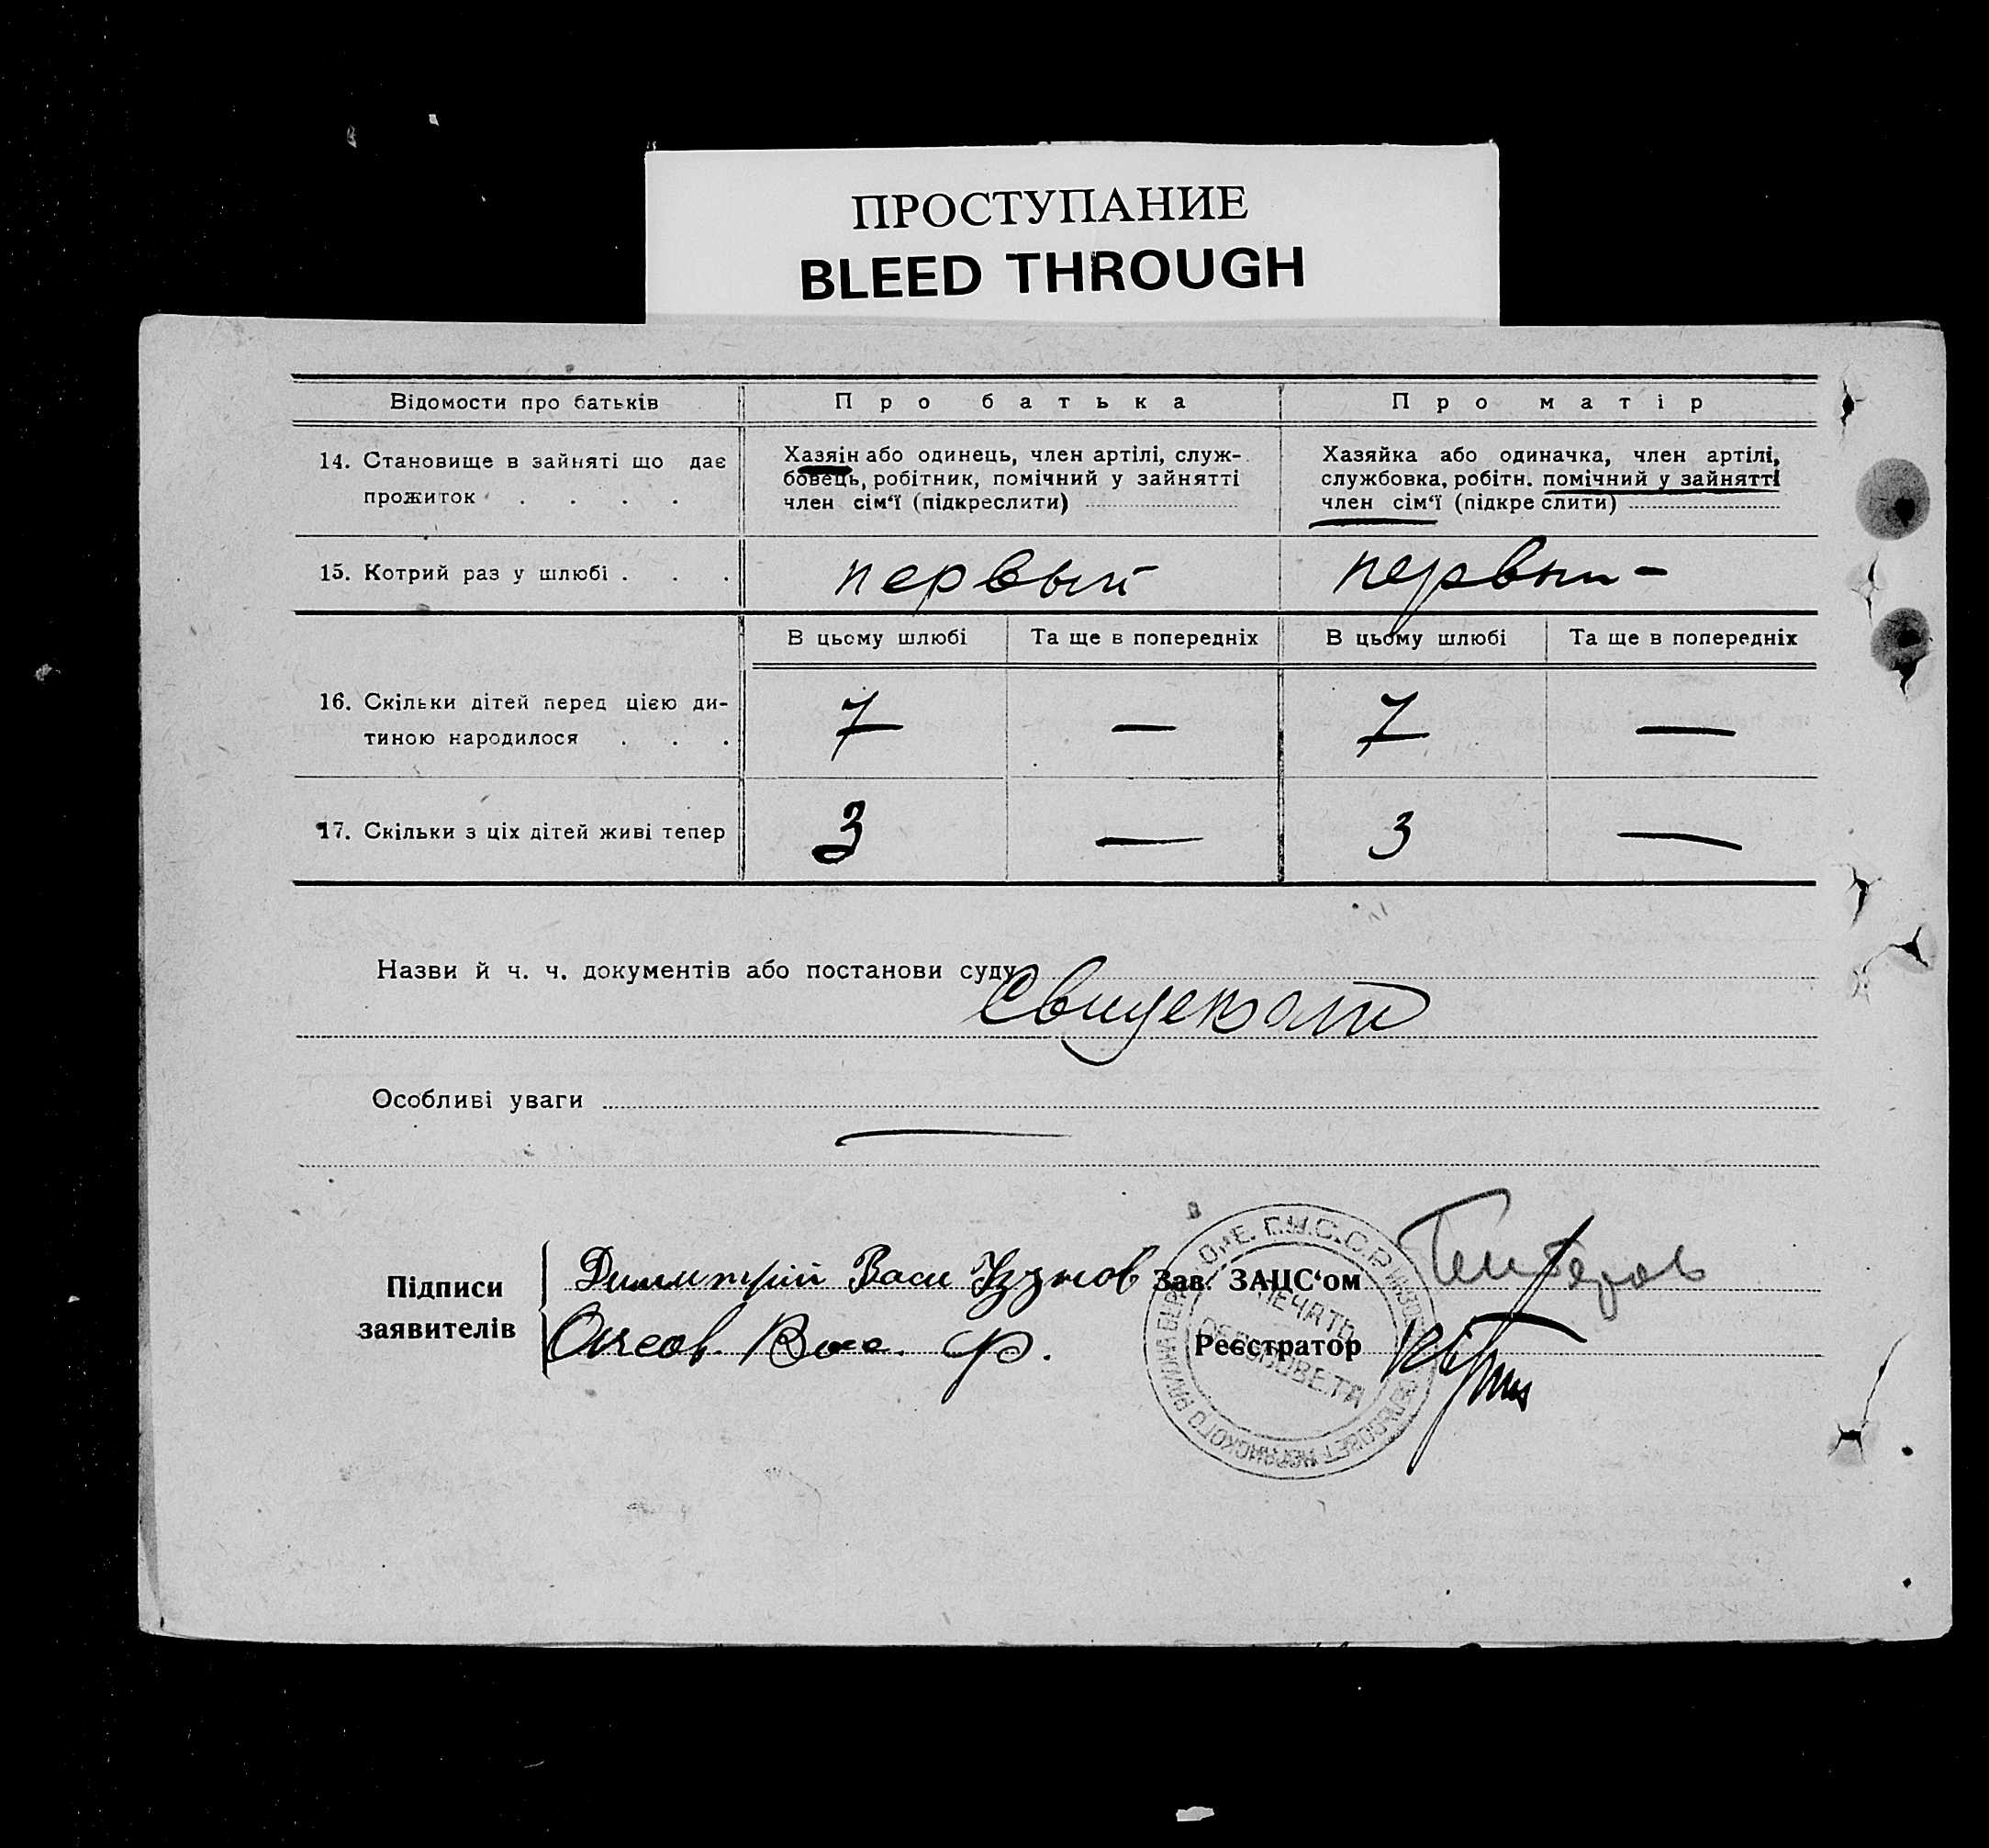 ПРОСТУПАНИЕ
BLEED THROUGH
Відомости про батьків
Про батька
Про матір
14. Становище в зайняті що дає
прожиток . . . .
Хазяін або одинець, член артілі, служ-
бовець, робітник, помічний у зайнятті
член сім‘ї (підкреслити)
Хазяйка або одиначка, член артілі,
службовка, робітн. помічний у зайнятті
член сім‘ї (підкре слити)
15. Котрий раз у шлюбі . . .
первый
первый -
В цьому шлюбі
Та ще в попередніх
В цьому шлюбі
Та ще в попередніх
16. Скільки дітей перед цією ди-
тиною народилося . . .
7
—
7
—
17. Скільки з ціх дітей живі тепер
3
—
3
—
Назви й ч. ч. документів або постанови суду
Особливі уваги
—
Підписи
заявителів
Димитрій Васи
Вас. Ф.
Зав. ЗАЦС‘ом
Реєстратор
У.С.С.Р.
ПЕЧАТЬ